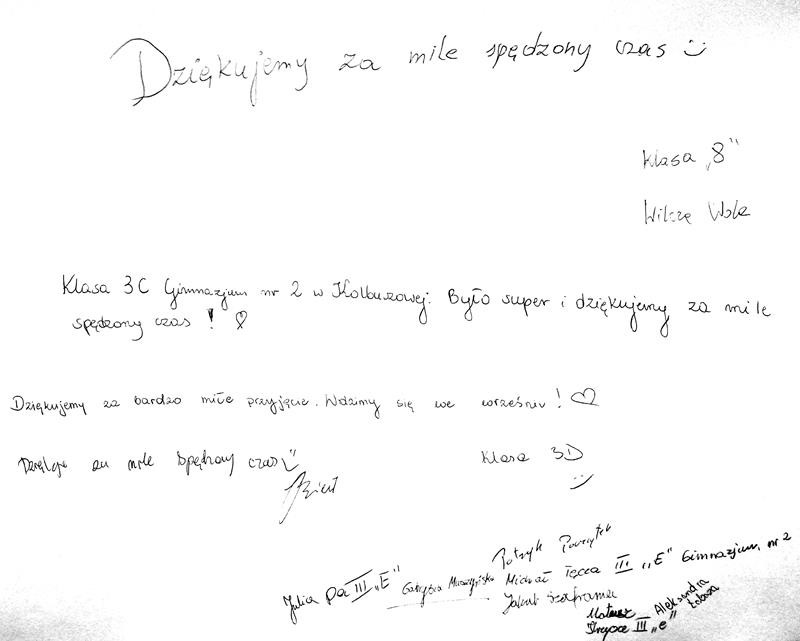 Dziękujemy za mile spędzony czas :)
Klasa „8”
Wilczę Wola
Klasa 3C Gimnazjum nr 2 w Kolbuszowej. Było super i dziękujemy za mile
spędzony czas ! ♡
Dziękujemy za bardzo miłe przyjęcie. Widzimy się we wrześniu ! ♡
Dziękuję za mile spędzony czas :)
Klasa 3D
:)
Patryk
Julia Pa III „E”
Michał Tęcza III „E” Gimnazjum nr 2
Jakub
Mateusz
III „e”
Aleksandra